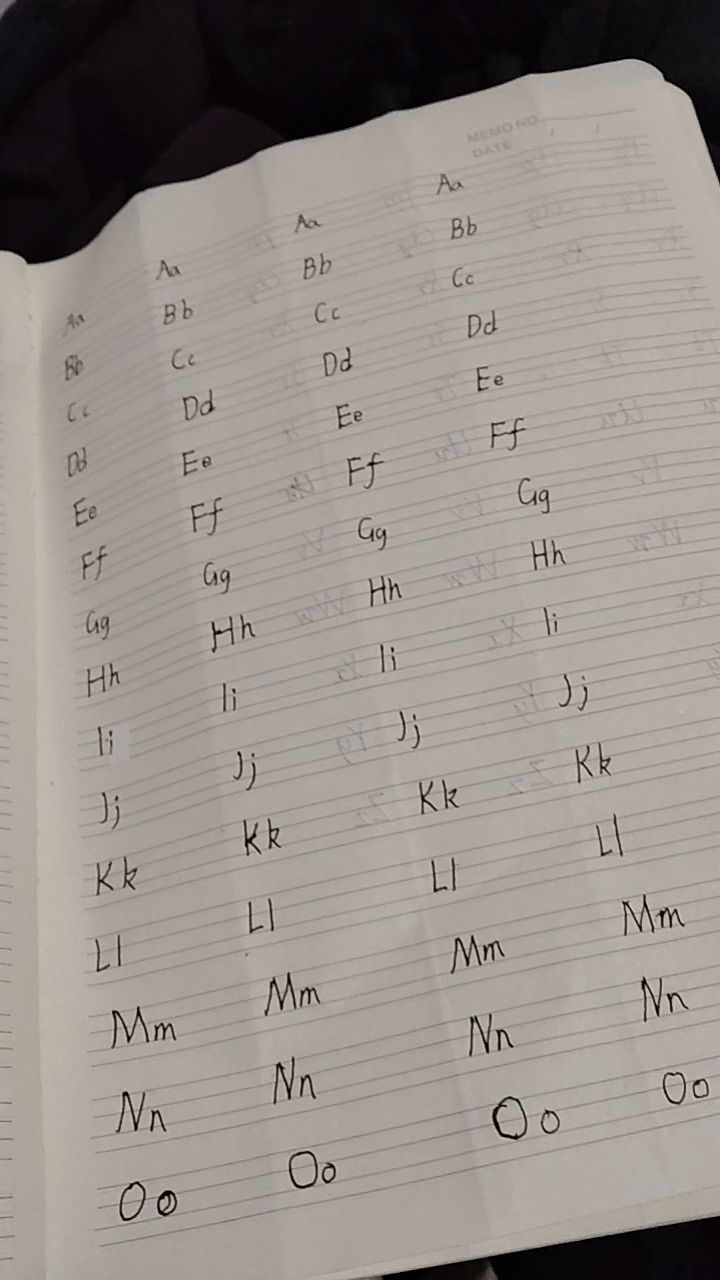 MEMO NO.
DATE / /
Aa Aa Aa Aa
Bb Bb Bb Bb
Cc Cc Cc Cc
Dd Dd Dd Dd
Ee Ee Ee Ee
Ff Ff Ff Ff
Gg Gg Gg Gg
Hh Hh Hh Hh
Ii Ii Ii Ii
Jj Jj Jj Jj
Kk Kk Kk Kk
Ll Ll Ll Ll
Mm Mm Mm Mm
Nn Nn Nn Nn
Oo Oo Oo Oo